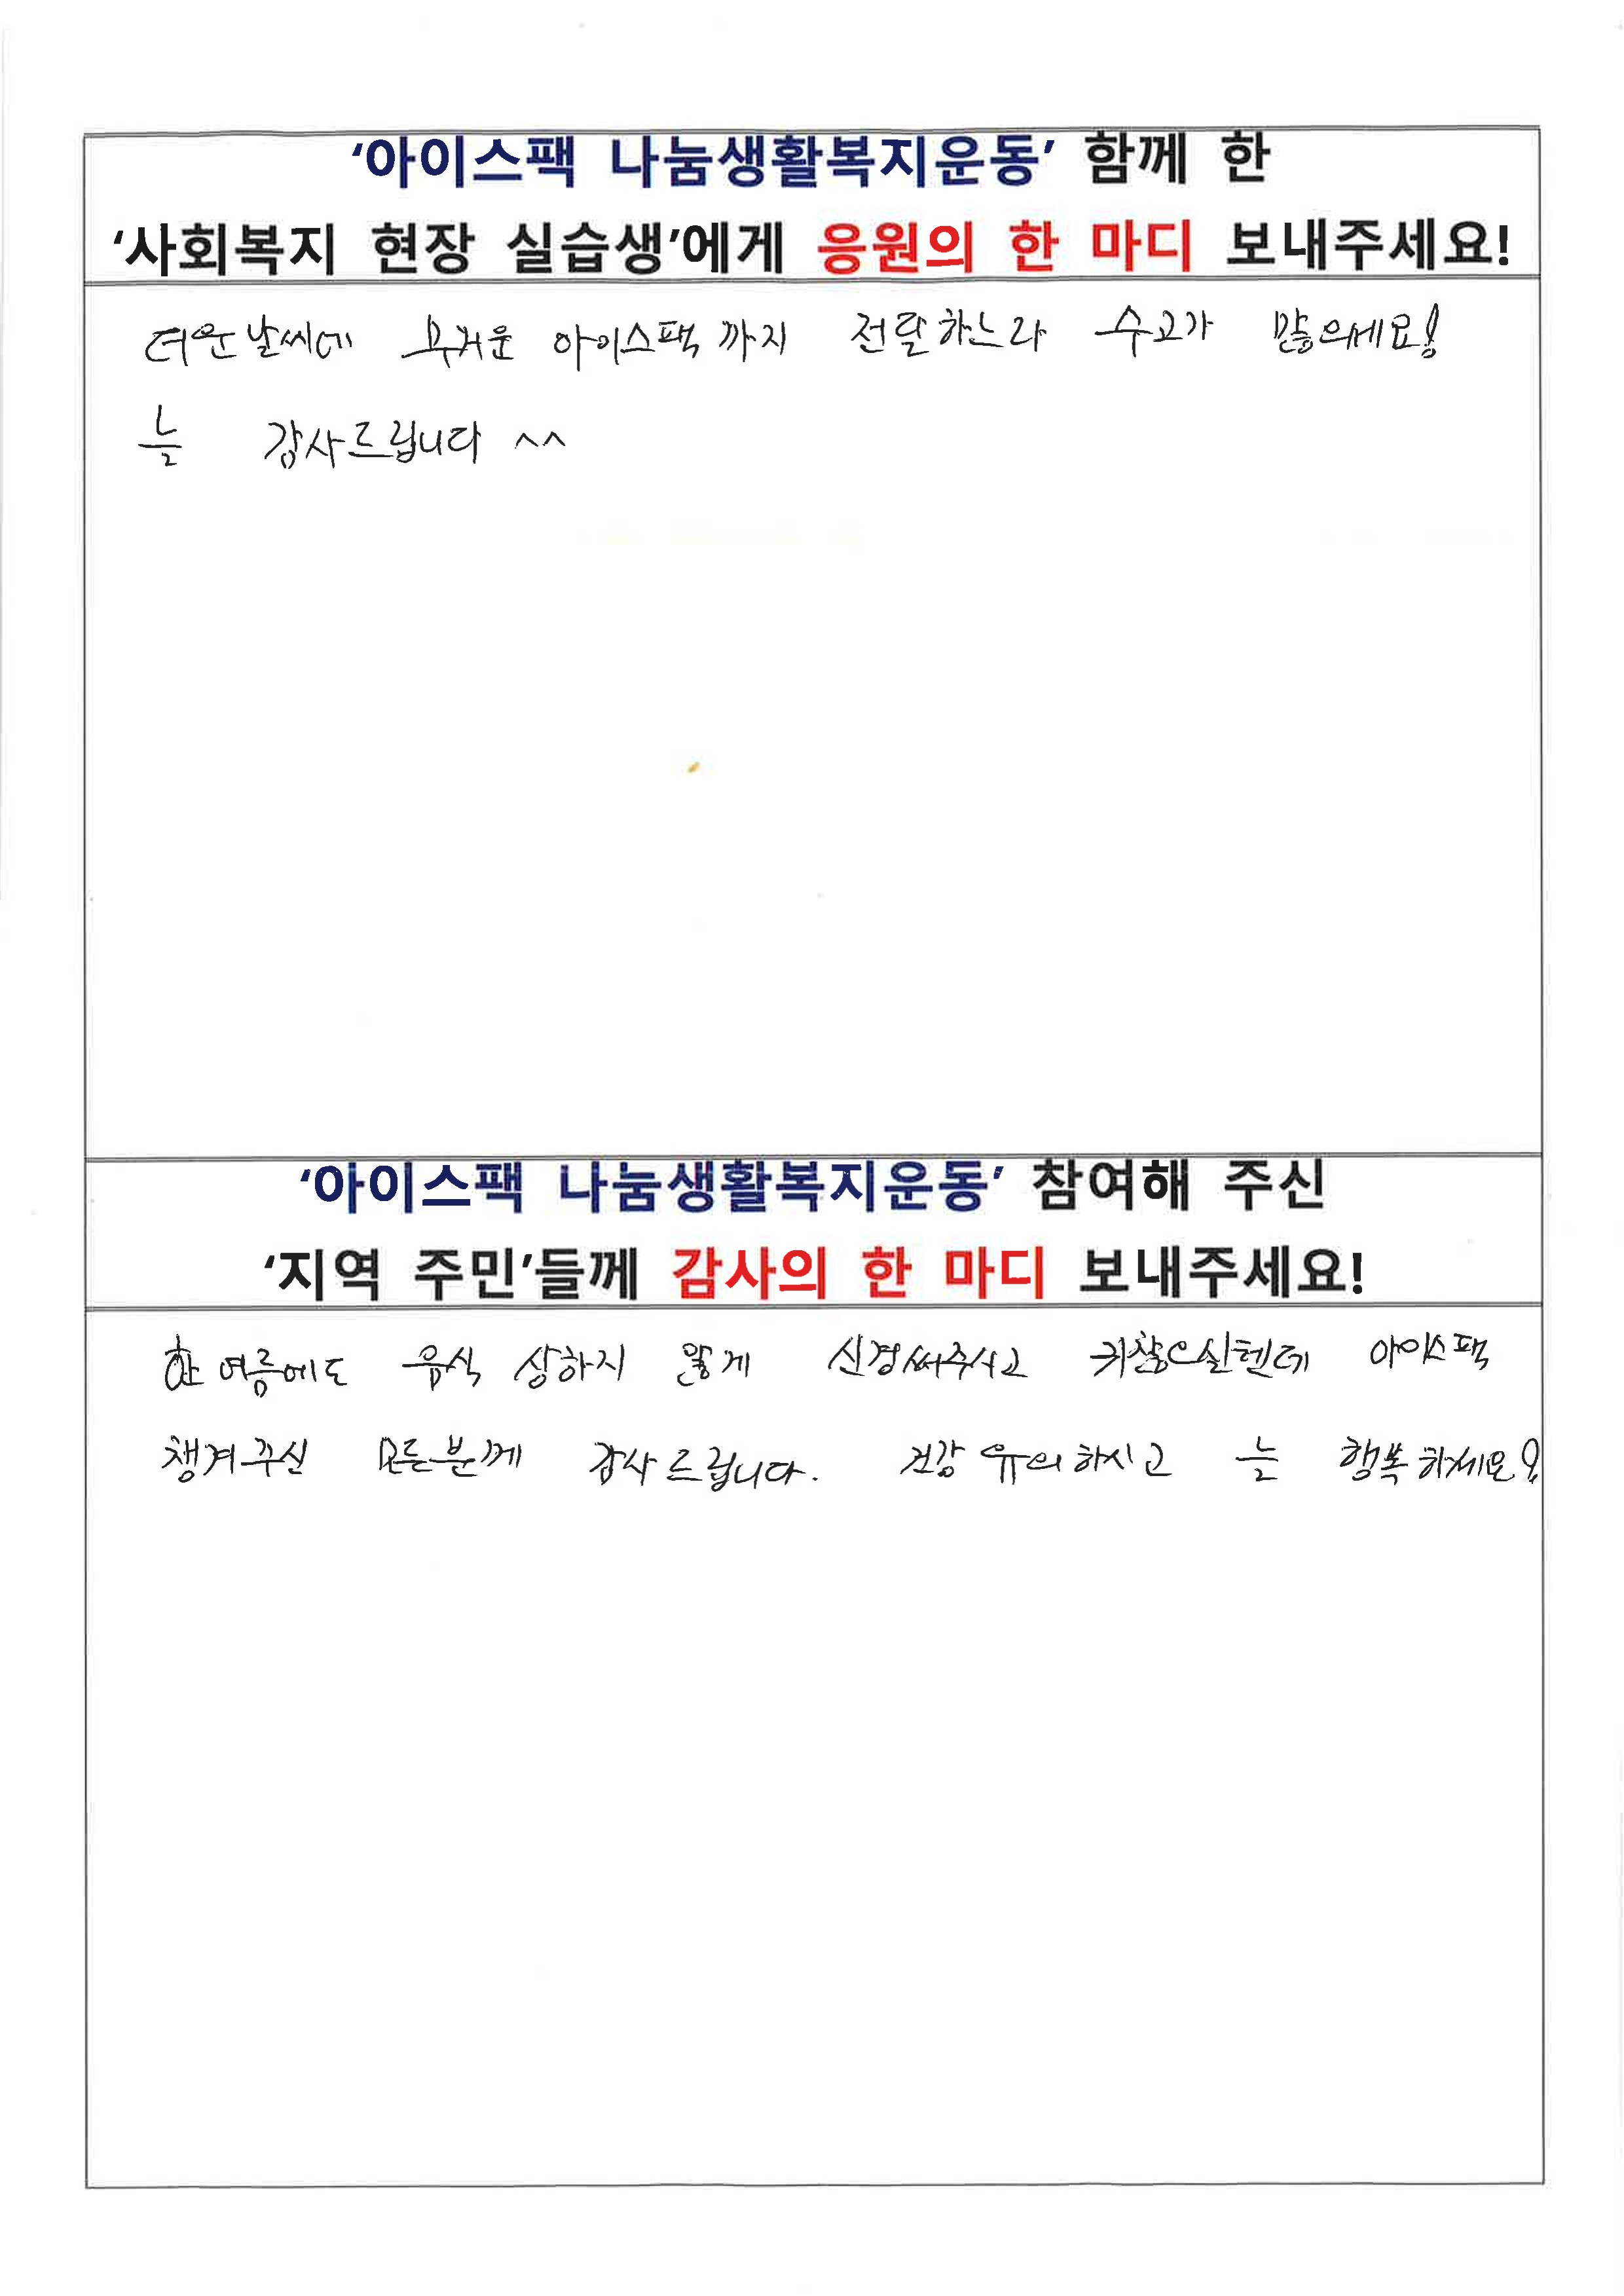 ‘아이스팩 나눔생활복지운동’ 함께 한
‘사회복지 현장 실습생’에게 응원의 한 마디 보내주세요!
더운 날씨에 무거운 아이스팩 까지 전달하느라 수고가 많으세요!
늘 감사드립니다 ^^
‘아이스팩 나눔생활복지운동’ 참여해 주신
‘지역 주민’들께 감사의 한 마디 보내주세요!
한 여름에도 음식 상하지 않게 신경써주시고 귀찮으실텐데 아이스팩
챙겨주신 모든분께 감사드립니다. 건강 유의하시고 늘 행복하세요!